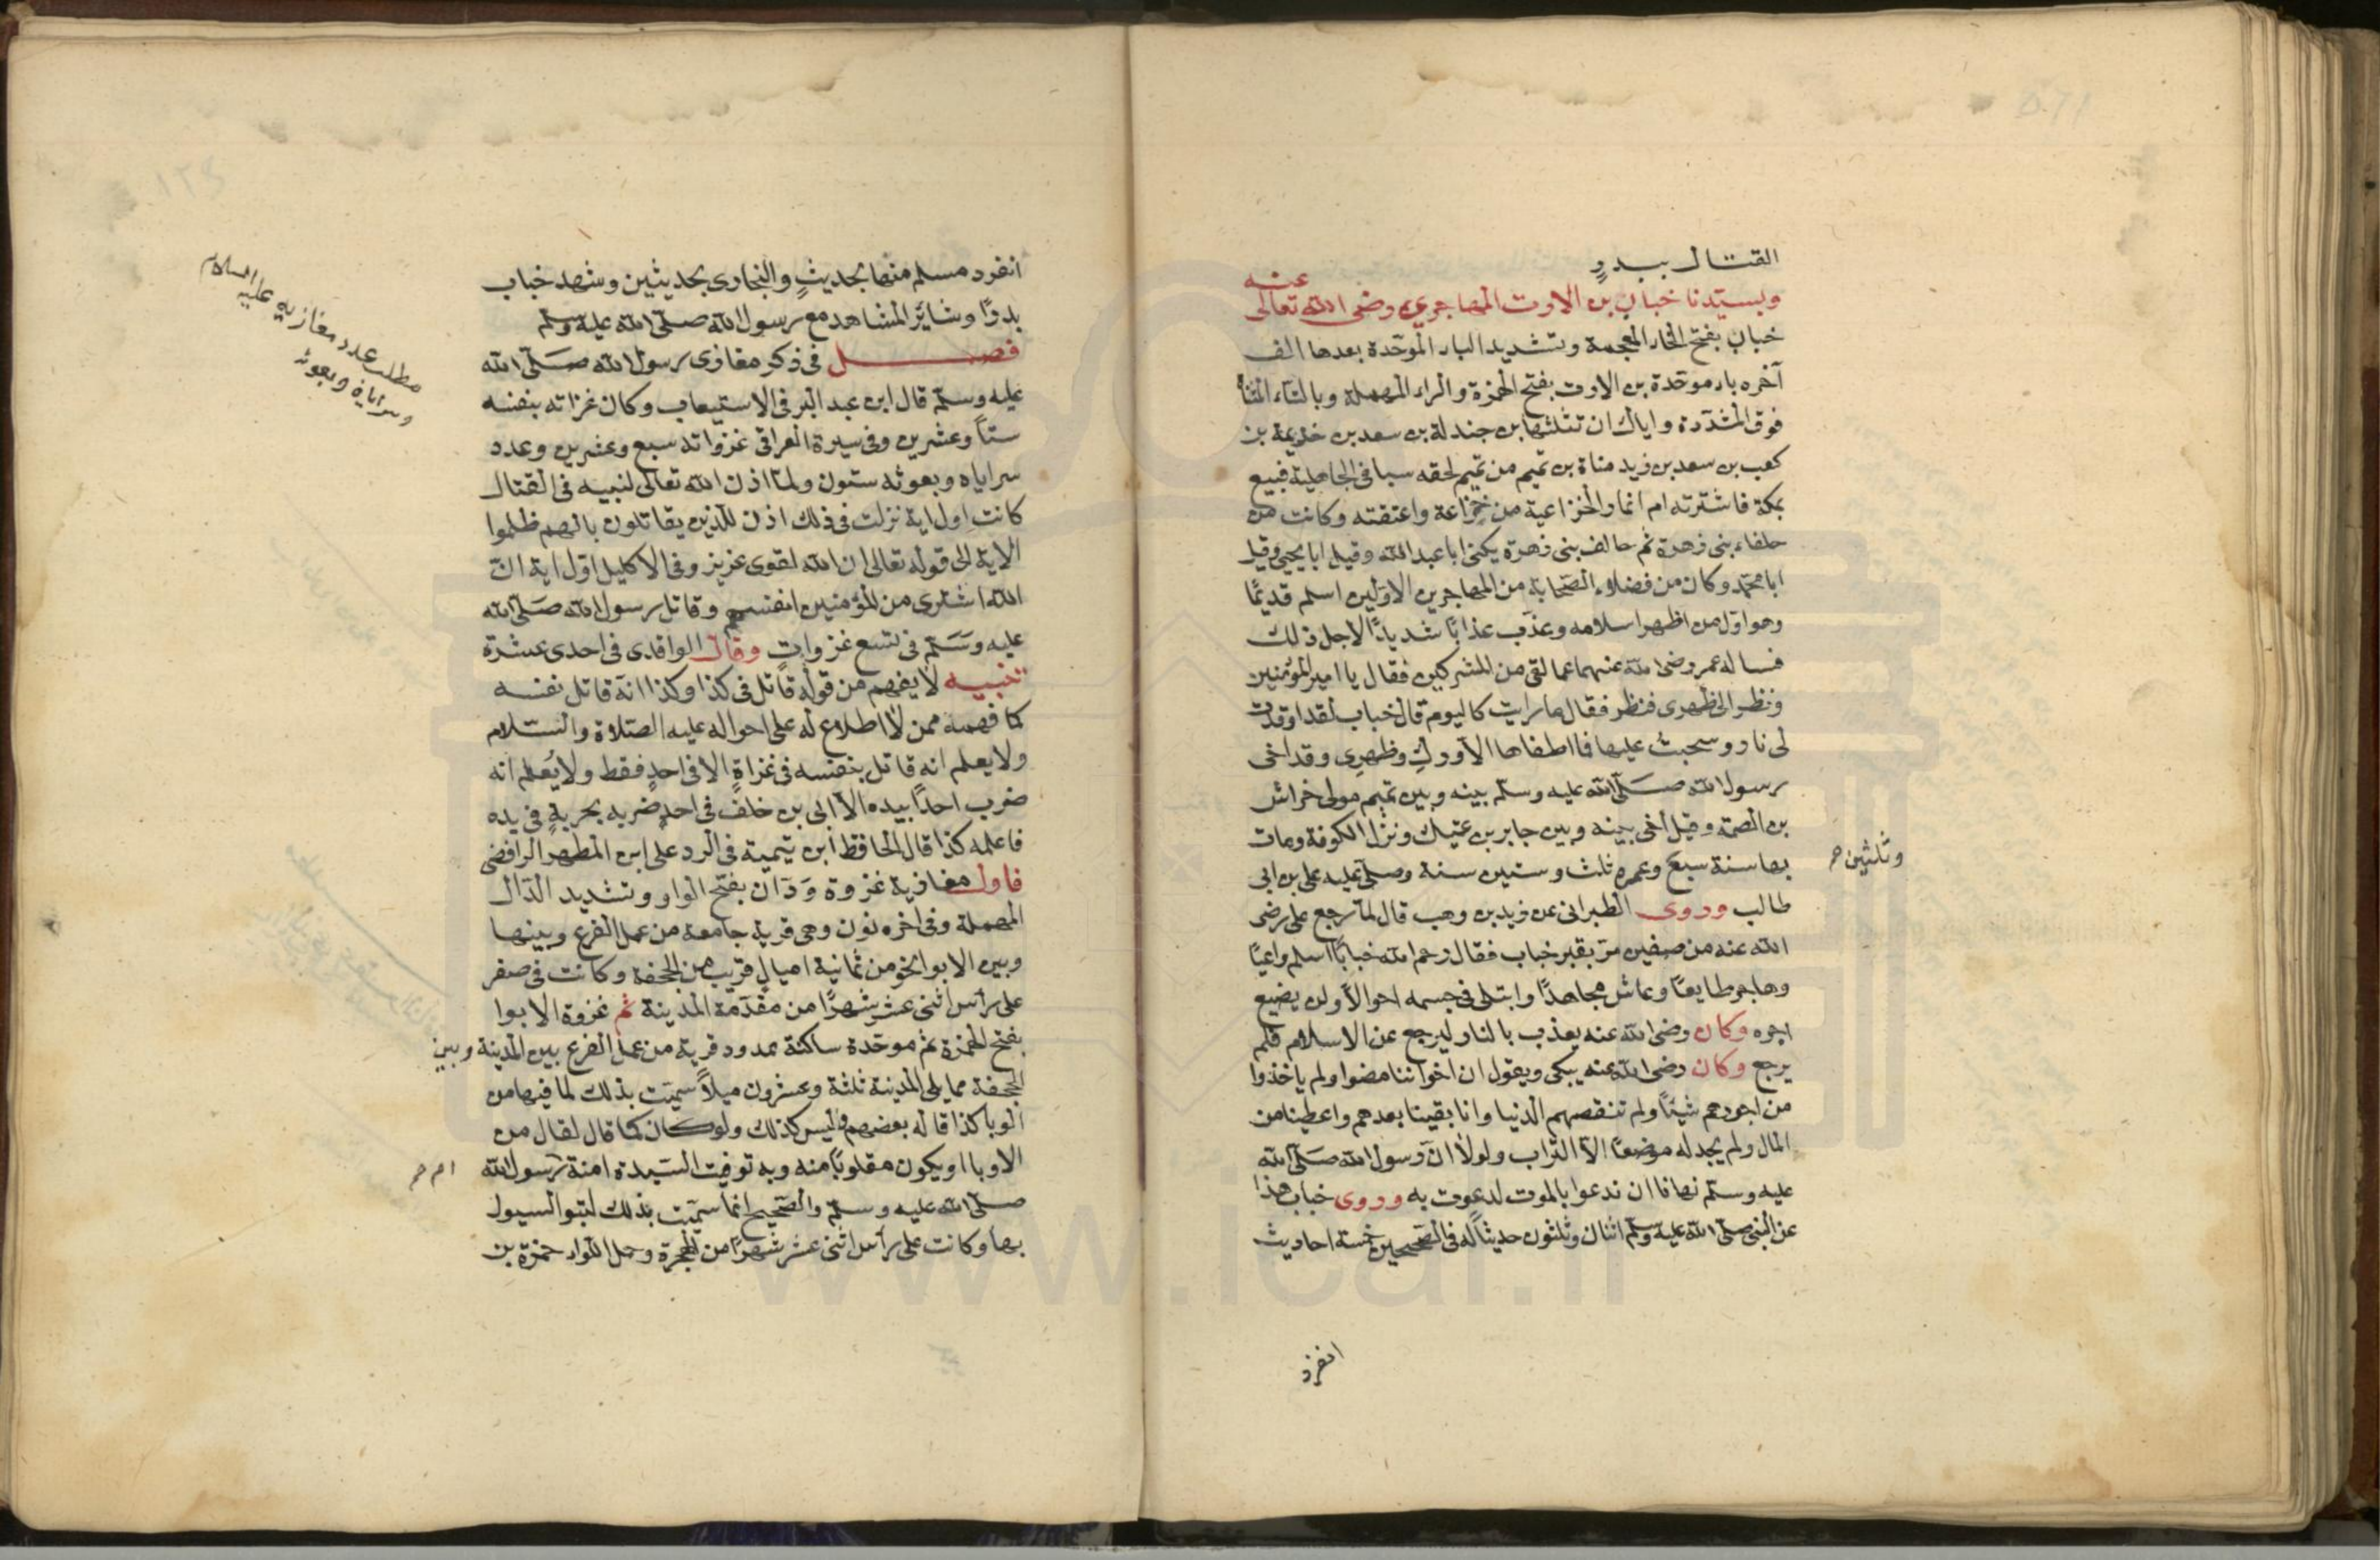 القتال ببدرٍ
وبسيّدنا خباب بن الارت المهاجري رضى الله تعالى عنه
خباب بفتح الخاء المعجمة وتشديد الباء الموحّدة بعدها الف
آخره باء موحّدة بن الارت بفتح الهمزة والراء المهملة وبالتاء المثناة
فوق المشدّدة واياك ان تثلثها بن جندلة بن سعد بن خذيمة بن
كعب بن سعد بن زيد مناة بن تميم من تميم لحقه سبا فى الجاهلية فبيع
بمكة فاشترته ام انمار الخزاعية من خزاعة واعتقته وكانت من
حلفاء بنى زهرة ثم حالف بنى زهرة يكنى ابا عبد الله وقيل ابا يحيى وقيل
ابا محمّد وكان من فضلاء الصّحابة من المهاجرين الاوّلين اسلم قديمًا
وهو اوّل من اظهر اسلامه وعذّب عذابًا شديدًا لاجل ذلك
فساله عمر رضى الله عنهما عما لقى من المشركين فقال يا امير المؤمنين
ونظر الى ظهرى فنظر فقال ما رايت كاليوم قال خباب لقد اوقدت
لى نار وسحبت عليها فما اطفاها الا ورك وظهرى وقد اخى
رسول الله صلّى الله عليه وسلّم بينه وبين تميم مولى خراش
بن الصمة وقيل اخى بينه وبين جابر بن عتيك ونزل الكوفة ومات
بها سنة سبع وعمره ثلث وستين سنة وصلّى عليه على بن ابى
وثلثين صح
طالب وروى الطبرانى عن زيد بن وهب قال لما رجع على رضى
الله عنه من صفين مرّ بقبر خباب فقال رحم الله خبابًا اسلم راغبًا
وهاجر طايعًا وعاش مجاهدًا وابتلى فى جسمه احوالا ولن يضيع
اجره وكان رضى الله عنه يعذب بالنار ليرجع عن الاسلام فلم
يرجع وكان رضى الله عنه يبكى ويقول ان اخواننا مضوا ولم ياخذوا
من اجورهم شيئًا ولم تنقصهم الدنيا وانا بقينا بعدهم واعطينا من
المال ولم يجد له موضعًا الا التراب ولولا انّ رسول الله صلّى الله
عليه وسلّم نهانا ان ندعوا بالموت لدعوت به وروى خباب هذا
عن النبى صلّى الله عليه وسلّم اثنان وثلثون حديثًا له فى الصحيحين خمسة احاديث
انفرد
انفرد مسلم منها بحديثٍ والبخارى بحديثين وشهد خباب
بدرًا وسائر المشاهد مع رسول الله صلّى الله عليه وسلّم
فصل فى ذكر مغازى رسول الله صلّى الله
عليه وسلّم قال ابن عبد البر فى الاستيعاب وكان غزاته بنفسه
ستاً وعشرين وفى سيرة العراقى غزواته سبع وعشرين وعدد
سراياه وبعوثه ستون ولمّا اذن الله تعالى لنبيه فى القتال
كانت اول اية نزلت فى ذلك اذن للذين يقاتلون بانهم ظلموا
الاية الى قوله تعالى ان الله لقوى عزيز وفى الاكليل اوّل اية انّ
الله اشترى من المؤمنين انفسهم وقاتل رسول الله صلّى الله
عليه وسلّم فى تسع غزوات وقال الواقدى فى احدى عشرة
تنبيه لا يفهم من قوله قاتل فى كذا وكذا انّه قاتل نفسه
كما فهمه ممن لا اطلاع له على احواله عليه الصّلاة والسّلام
ولا يعلم انه قاتل بنفسه فى غزاةٍ الا فى احدٍ فقط ولا يُعلم انه
ضرب احدًا بيده الا ابى بن خلف فى احدٍ ضربه بحربةٍ فى يده
فاعلمه كذا قال الحافظ ابن تيمية فى الرد على ابن المطهر الرافضى
فاول مغازيه غزوة ودّان بفتح الواو وتشديد الدّال
المهملة وفى اخره نون وهى قرية جامعة من عمل الفرع وبينها
وبين الابوا نحو من ثمانية اميالٍ قريب من الجحفة وكانت فى صفر
على رأس اثنى عشر شهرًا من مقدّمة المدينة ثم غزوة الابوا
بفتح الهمزة ثم موحّدة ساكنة ممدود قرية من عمل الفرع بين المدينة وبين
الجحفة مما يلى المدينة ثلثة وعشرون ميلاً سميّت بذلك لما فيها من
الوبا كذا قاله بعضهم وليس كذلك ولو كان كما قال لقال من
الاوبا او يكون مقلوبًا منه وبه توفيت السّيدة امنة رسول الله
ام صح
صلّى الله عليه وسلّم والصّحيح انما سميّت بذلك لتبوالسيول
بها وكانت على رأس اثنى عشر شهرًا من الهجرة وحمل اللواء حمزة بن
مطلب عدد مغازيه عليه السلام
وسراياه وبعوثه
١٢٤
www.ical.ir